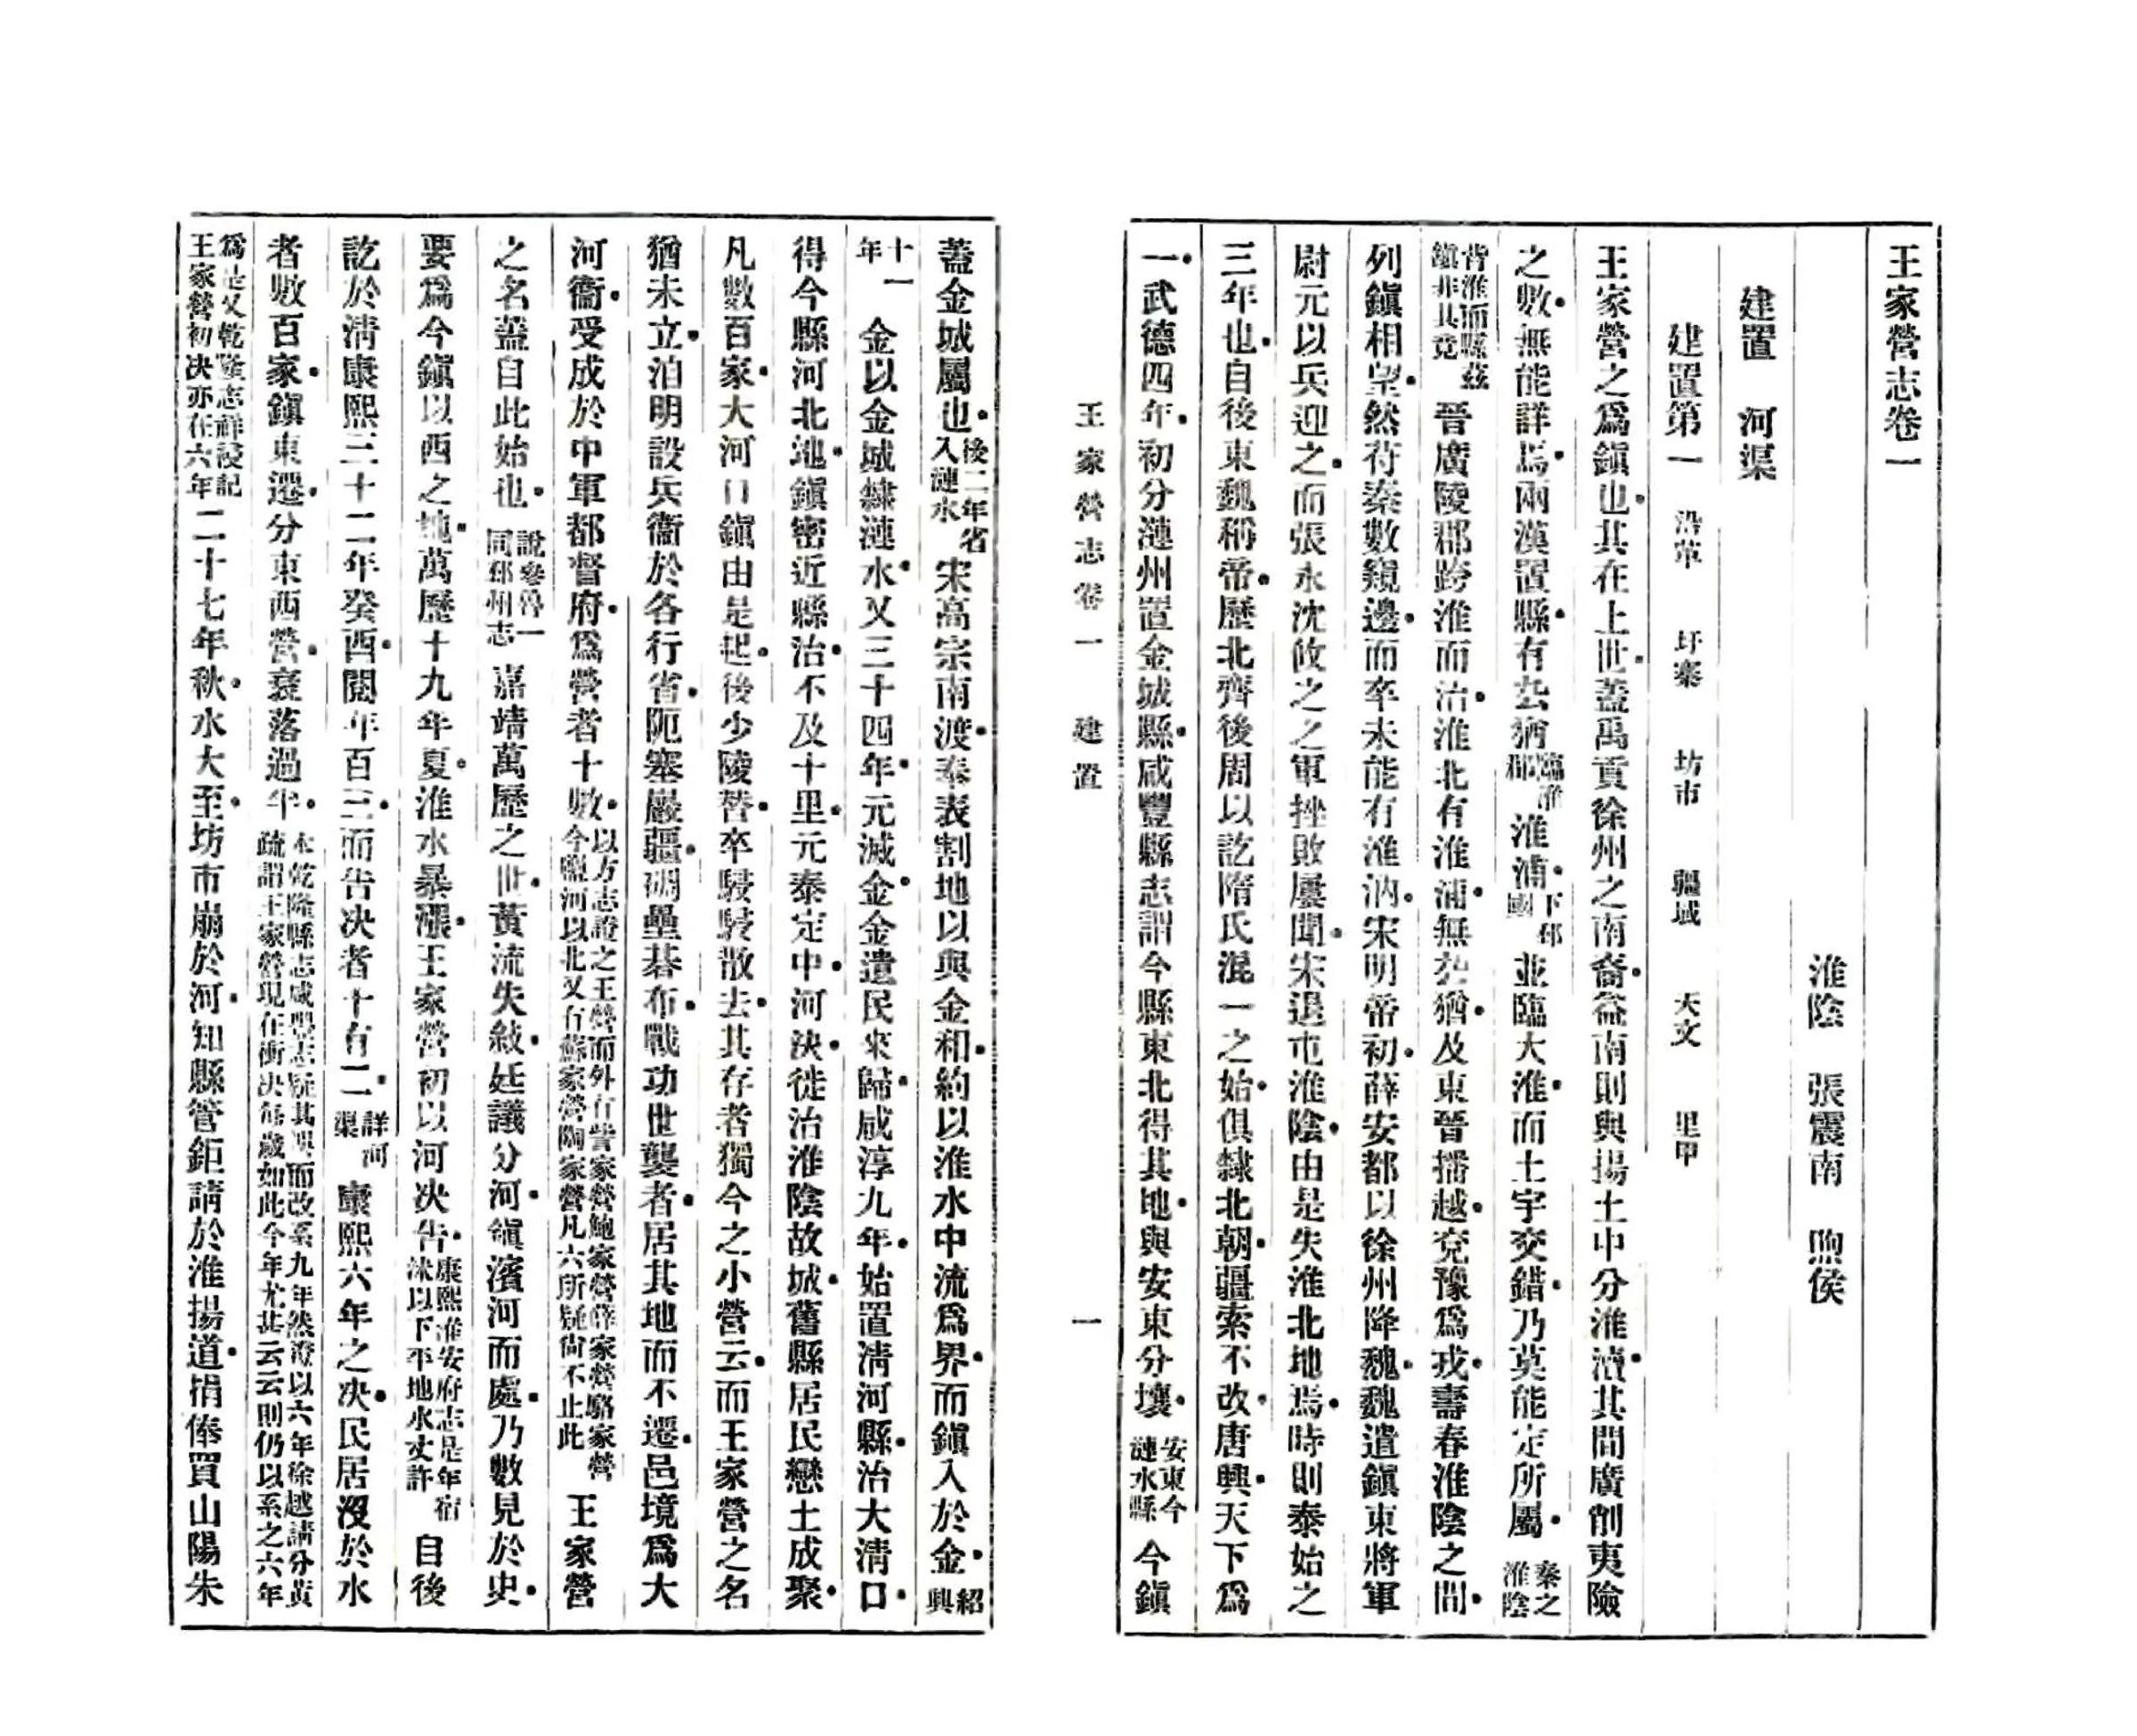 王家營志卷一
淮陰　張震南　煦侯
建置　河渠
建置第一　沿革　圩寨　坊市　疆域　天文　里甲
王家營之爲鎭也其在上世蓋禹貢徐州之南裔益南則與揚土中分淮瀆其間廣削夷險
之數無能詳焉兩漢置縣有厹猶臨淮郡淮浦下邳國並臨大淮而土宇交錯乃莫能定所屬秦之淮陰
背淮而縣茲鎭非其竟晉廣陵郡跨淮而治淮北有淮浦無厹猶及東晉播越兗豫爲戎壽春淮陰之間
列鎭相望然苻秦數窺邊而卒未能有淮汭宋明帝初薛安都以徐州降魏魏遣鎭東將軍
尉元以兵迎之而張永沈攸之之軍挫敗屢聞宋退屯淮陰由是失淮北地焉時則泰始之
三年也自後東魏稱帝歷北齊後周以訖隋氏混一之始俱隸北朝疆索不改唐興天下爲
一武德四年初分漣州置金城縣咸豐縣志謂今縣東北得其地與安東分壤安東今漣水縣今鎭
王家營志卷一　建置　一
蓋金城屬也後二年省入漣水宋高宗南渡奉表割地以與金和約以淮水中流爲界而鎭入於金紹興
十一年金以金城隸漣水又三十四年元滅金金遺民來歸咸淳九年始置淸河縣治大淸口
得今縣河北地鎭密近縣治不及十里元泰定中河決徙治淮陰故城舊縣居民戀土成聚
凡數百家大河口鎭由是起後少陵替卒駸駸散去其存者獨今之小營云而王家營之名
猶未立洎明設兵衞於各行省阨塞巖疆硎壘碁布戰功世襲者居其地而不遷邑境爲大
河衞受成於中軍都督府爲營者十數以方志證之王營而外有訾家營鮑家營薛家營駱家營今鹽河以北又有蘇家營陶家營凡六所疑尙不止此王家營
之名蓋自此始也說參魯一同邳州志嘉靖萬歷之世黃流失敍廷議分河鎭濱河而處乃數見於史
要爲今鎭以西之地萬歷十九年夏淮水暴漲王家營初以河决告康熙淮安府志是年宿沭以下平地水丈許自後
訖於淸康熙三十二年癸酉閱年百三而告决者十有二詳河渠康熙六年之决民居沒於水
者數百家鎭東遷分東西營衰落過半本乾隆縣志咸豐志疑其誤而改系九年然澄以六年徐越請分黃疏謂王家營現在衝决每歲如此今年尤甚云云則仍以系之六年
爲是又乾隆志祥祲記王家營初决亦在六年二十七年秋水大至坊市崩於河知縣管鉅請於淮揚道捐俸買山陽朱